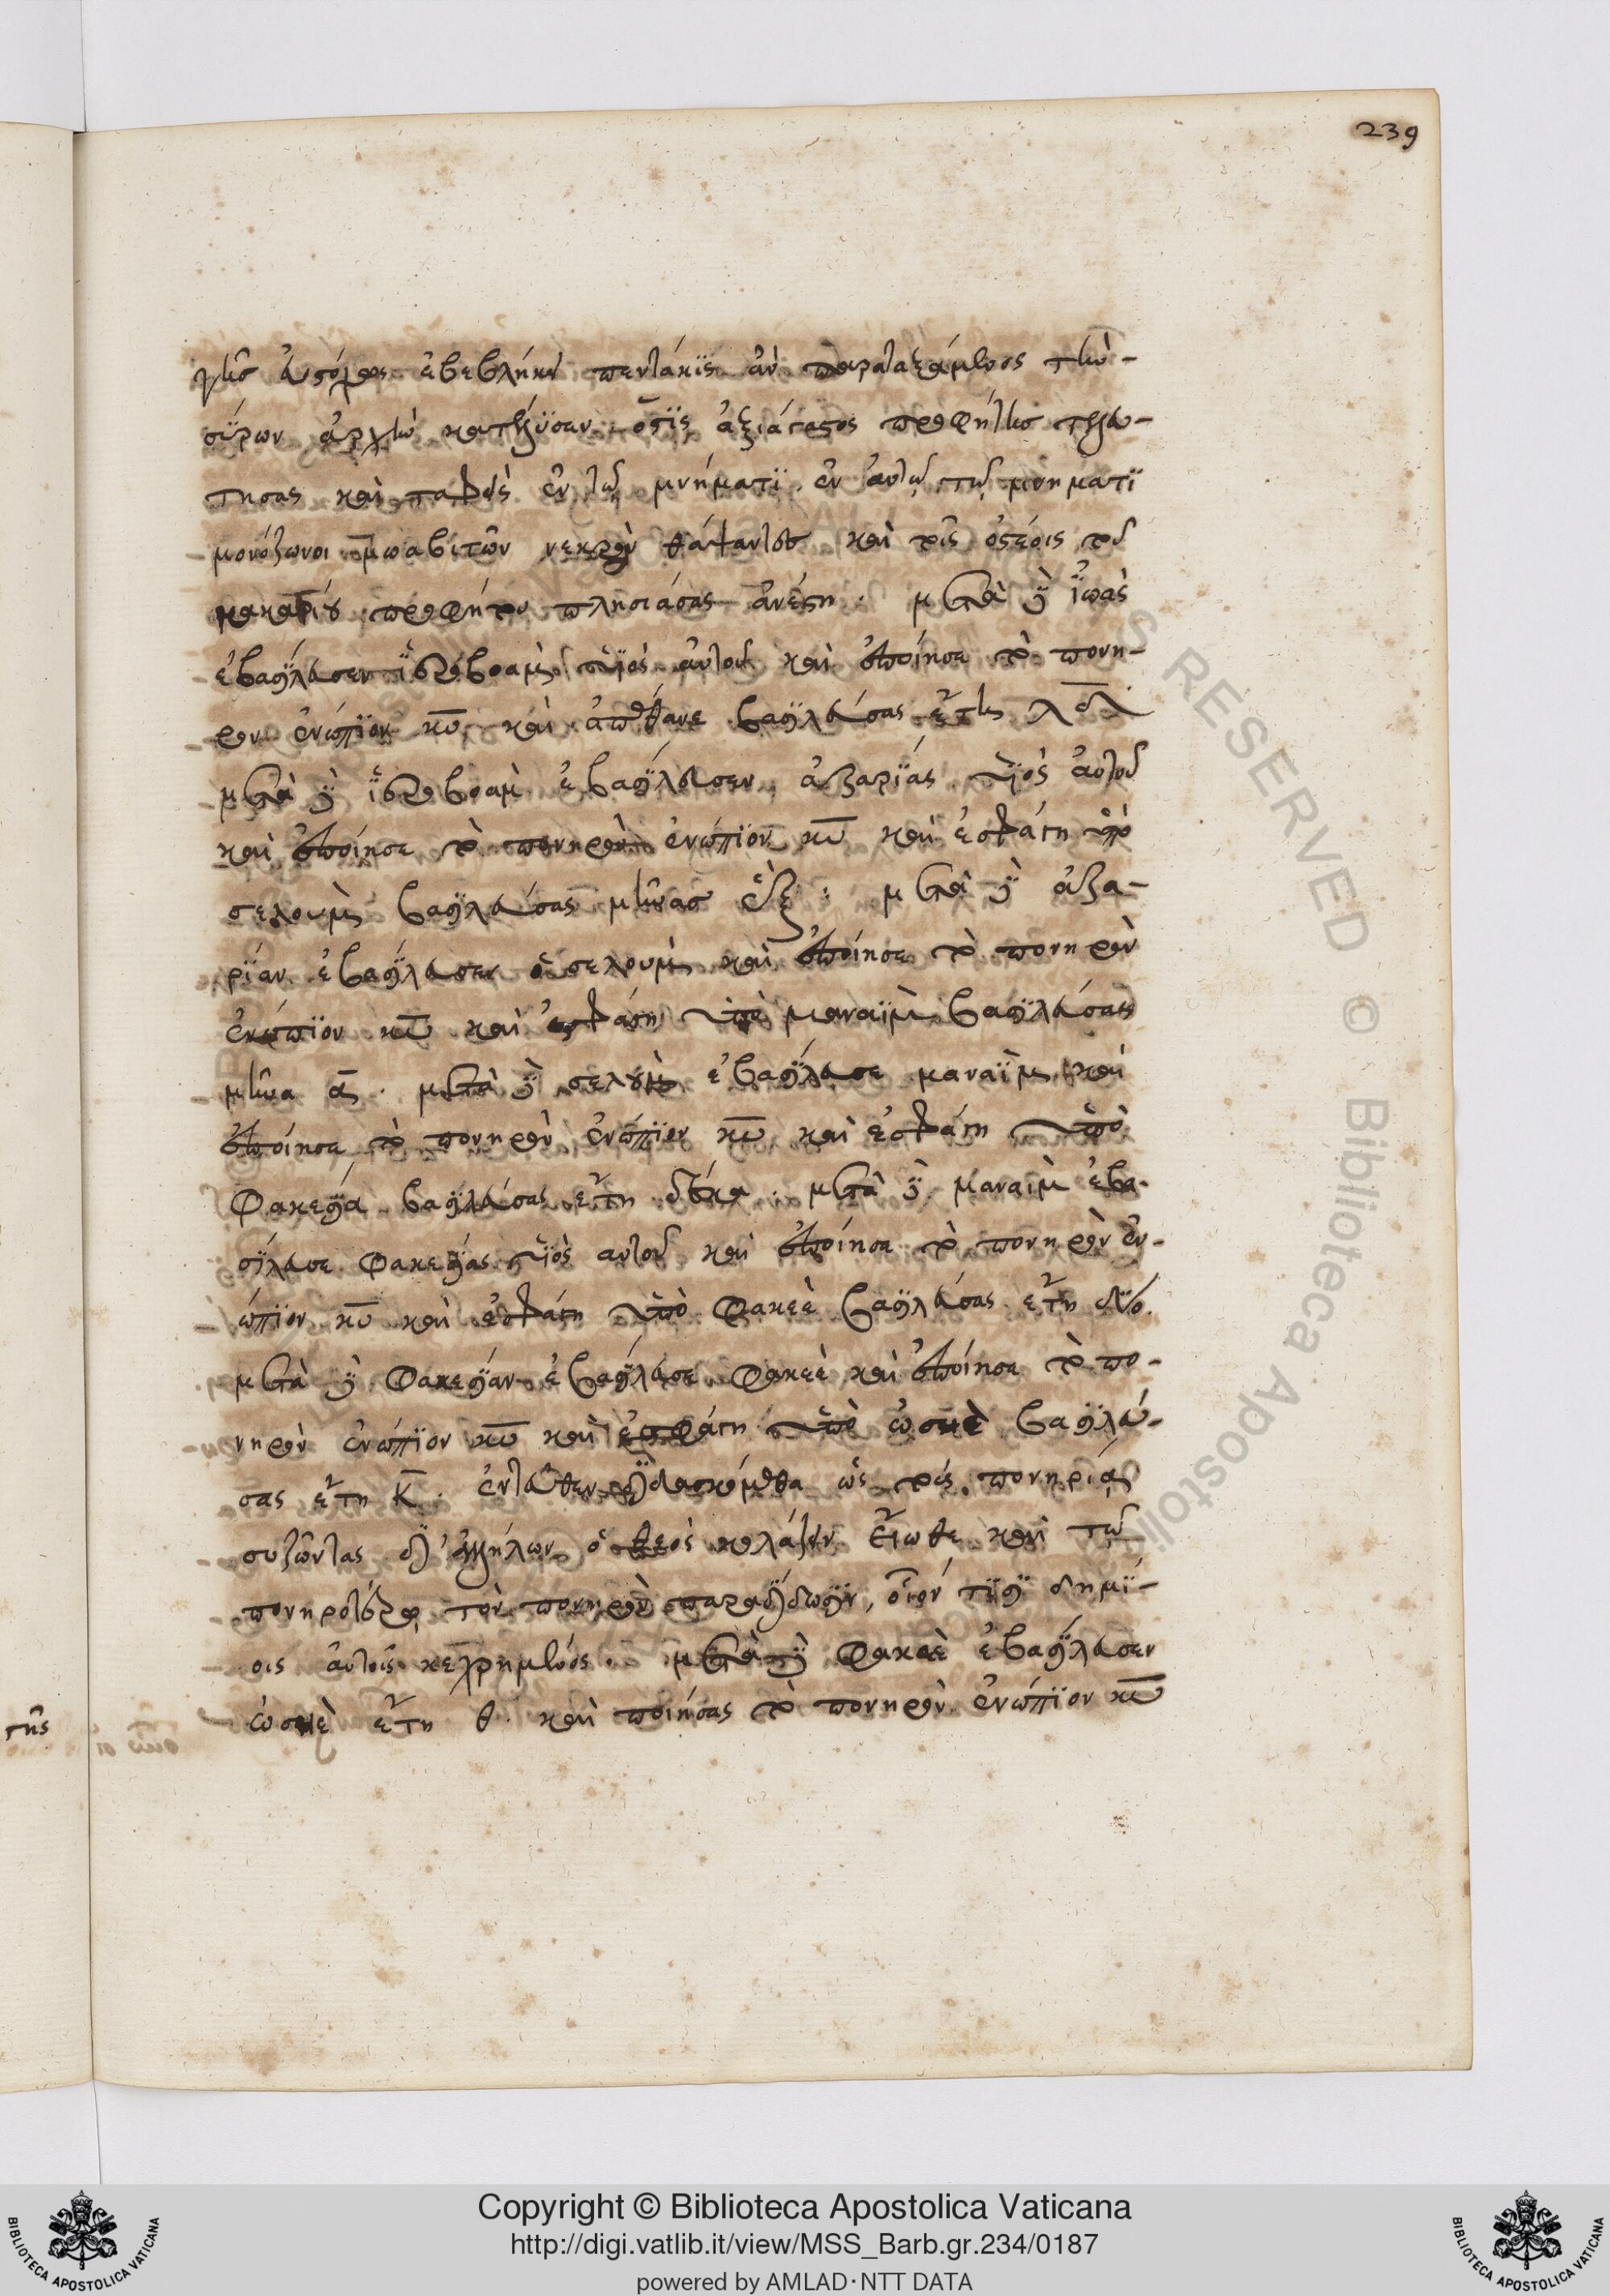 239
γῆς εὐστόχως ἐβεβλήκει πεντάκις ἂν παραταξάμενος τὴν
σύρων ἀρχὴν κατέλυσαν. ὅστις ἀξιάγαστος προφήτης τελευ-
τήσας καὶ ταφεὶς ἐν τῷ μνήματι. ἐν αὐτῷ τῷ μνήματι
μονόζωνοι μωαβιτῶν νεκρὸν θάψαντες καὶ τοῖς ὀστέοις τοῦ
μακαρίου προφήτου πλησιάσας ἀνέστη. μετὰ δὲ ἰωὰς
ἐβασίλευσεν ἱεροβοὰμ υἱὸς αὐτοῦ καὶ ἐποίησε τὸ πονη-
ρον ἐνώπιον κυ καὶ ἀπέθανε βασιλεύσας ἔτης
μετὰ δὲ ἱεροβοὰμ ἐβασίλευσεν ἀζαρίας υἱὸς αὐτοῦ
καὶ ἐποίησε τὸ πονηρὸν ἐνώπιον κυ καὶ ἐσφάγη ὑπὸ
σελουμ βασιλεύσας μῆνας ἕξ. μετὰ δὲ ἀζα-
ρίαν ἐβασίλευσεν ὁ σελουμ καὶ ἐποίησε τὸ πονηρὸν
ἐνώπιον κυ καὶ ἐσφάγη ὑπὸ μαναϊμ βασιλεύσας
μῆνα α. μετὰ δὲ σελουμ ἐβασίλευσε μαναϊμ καὶ
ἐποίησε τὸ πονηρὸν ἐνώπιον κυ καὶ ἐσφάγη ὑπὸ
φακεσία βασιλεύσας ἔτη δέκα. μετὰ δὲ μαναϊμ ἐβα-
σίλευσε φακεσίας υἱὸς αὐτοῦ καὶ ἐποίησε τὸ πονηρὸν ἐν-
ώπιον κυ καὶ ἐσφάγη ὑπὸ φακεὲ βασιλεύσας ἔτη δύο.
μετὰ δὲ φακεσίαν ἐβασίλευσε φακεὲ καὶ ἐποίησε τὸ πο-
νηρὸν ἐνώπιον κυ καὶ ἐσφάγη ὑπὸ ὠσηὲ βασιλεύ-
σας ἔτη κ. ἐντεῦθεν διδασκόμεθα ὡς τοὺς πονηρίᾳ
συζῶντας δι' ἀλλήλων ὁ θεὸς κολάζειν εἴωθε καὶ τῷ
πονηροτέρῳ τὸν πονηρὸν παραδίδωσιν, οἷον τισι δημί-
οις αὐτοῖς κεχρημένος. μετὰ δὲ φακεὲ ἐβασίλευσεν
ὠσηὲ ἔτη θ. καὶ ποιήσας τὸ πονηρὸν ἐνώπιον κυ
της
RESERVED © Biblioteca Apostoli
Copyright © Biblioteca Apostolica Vaticana
http://digi.vatlib.it/view/MSS_Barb.gr.234/0187
powered by AMLAD·NTT DATA
BIBLIOTECA APOSTOLICA VATICANA
BIBLIOTECA APOSTOLICA VATICANA